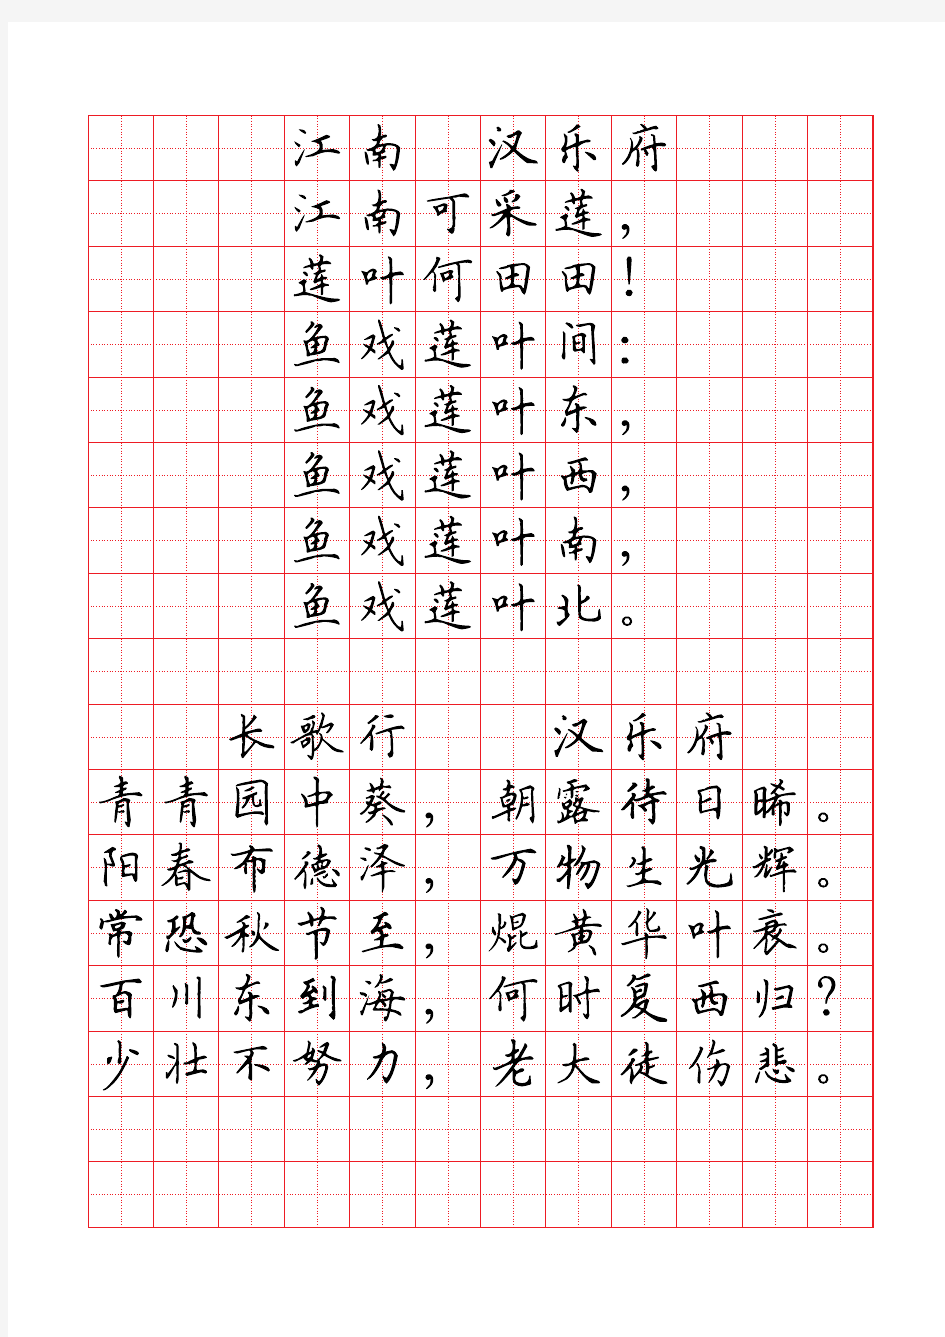 江南 汉乐府
江南可采莲，
莲叶何田田！
鱼戏莲叶间：
鱼戏莲叶东，
鱼戏莲叶西，
鱼戏莲叶南，
鱼戏莲叶北。
长歌行 汉乐府
青青园中葵，朝露待日晞。
阳春布德泽，万物生光辉。
常恐秋节至，焜黄华叶衰。
百川东到海，何时复西归？
少壮不努力，老大徒伤悲。